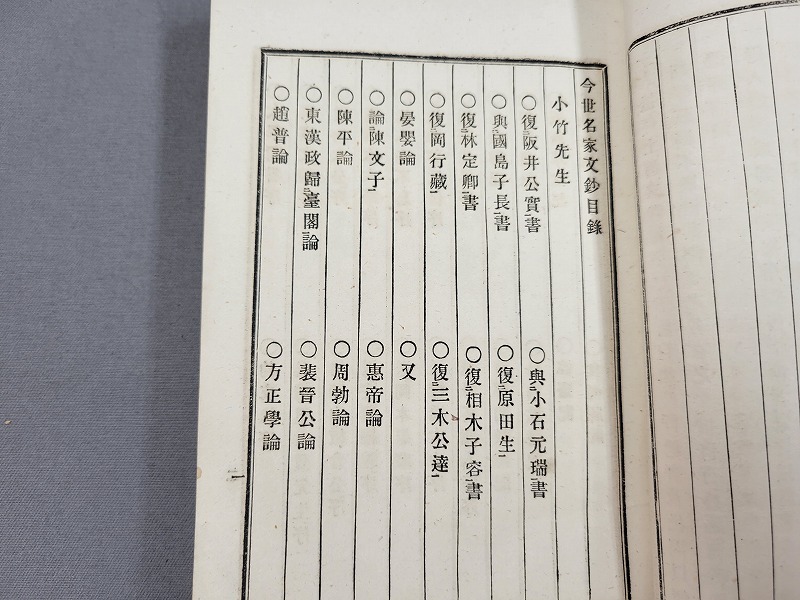 今世名家文鈔目錄
小竹先生
○復阪井公實書
○與小石元瑞書
○與國島子長書
○復原田生
○復林定卿書
○復相木子容書
○復岡行藏
○復三木公逵
○晏嬰論
○又
○論陳文子
○惠帝論
○陳平論
○周勃論
○東漢政歸臺閣論
○裴晉公論
○趙普論
○方正學論
一